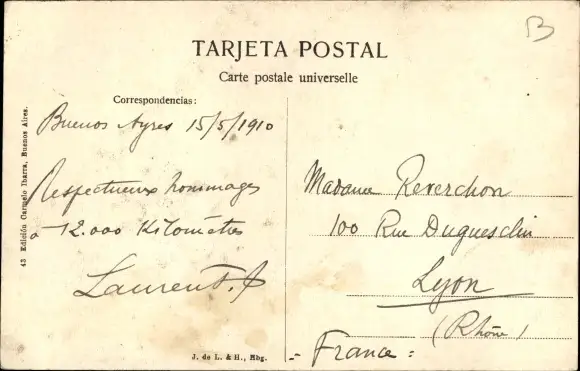 B
TARJETA POSTAL
Carte postale universelle
Correspondencias:
Buenos Ayres 15/5/1910
Respectueux hommages
à 12.000 Kilomètres
Laurent.
43 Edición Carmelo Ibarra, Buenos Aires.
J. de L. & H., Hbg.
Madame Reverchon
100 Rue Duguesclin
Lyon
(Rhône)
- France =